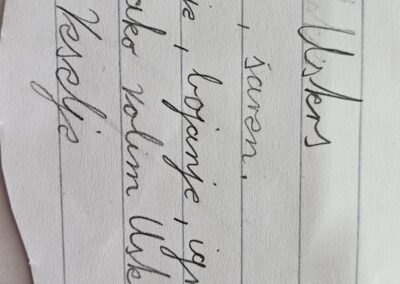 Uskrs
, šaren.
je, bojanje, igr
ako volim Usk
Veselje